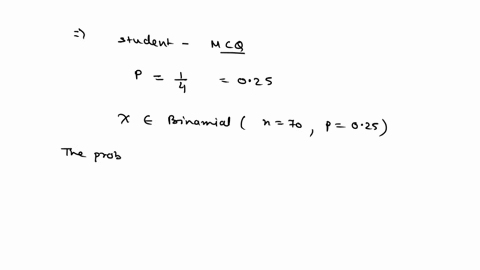 => student - MCQ
P = 1/4 = 0.25
X ∈ Binamial ( n = 70 , P = 0.25 )
The prob